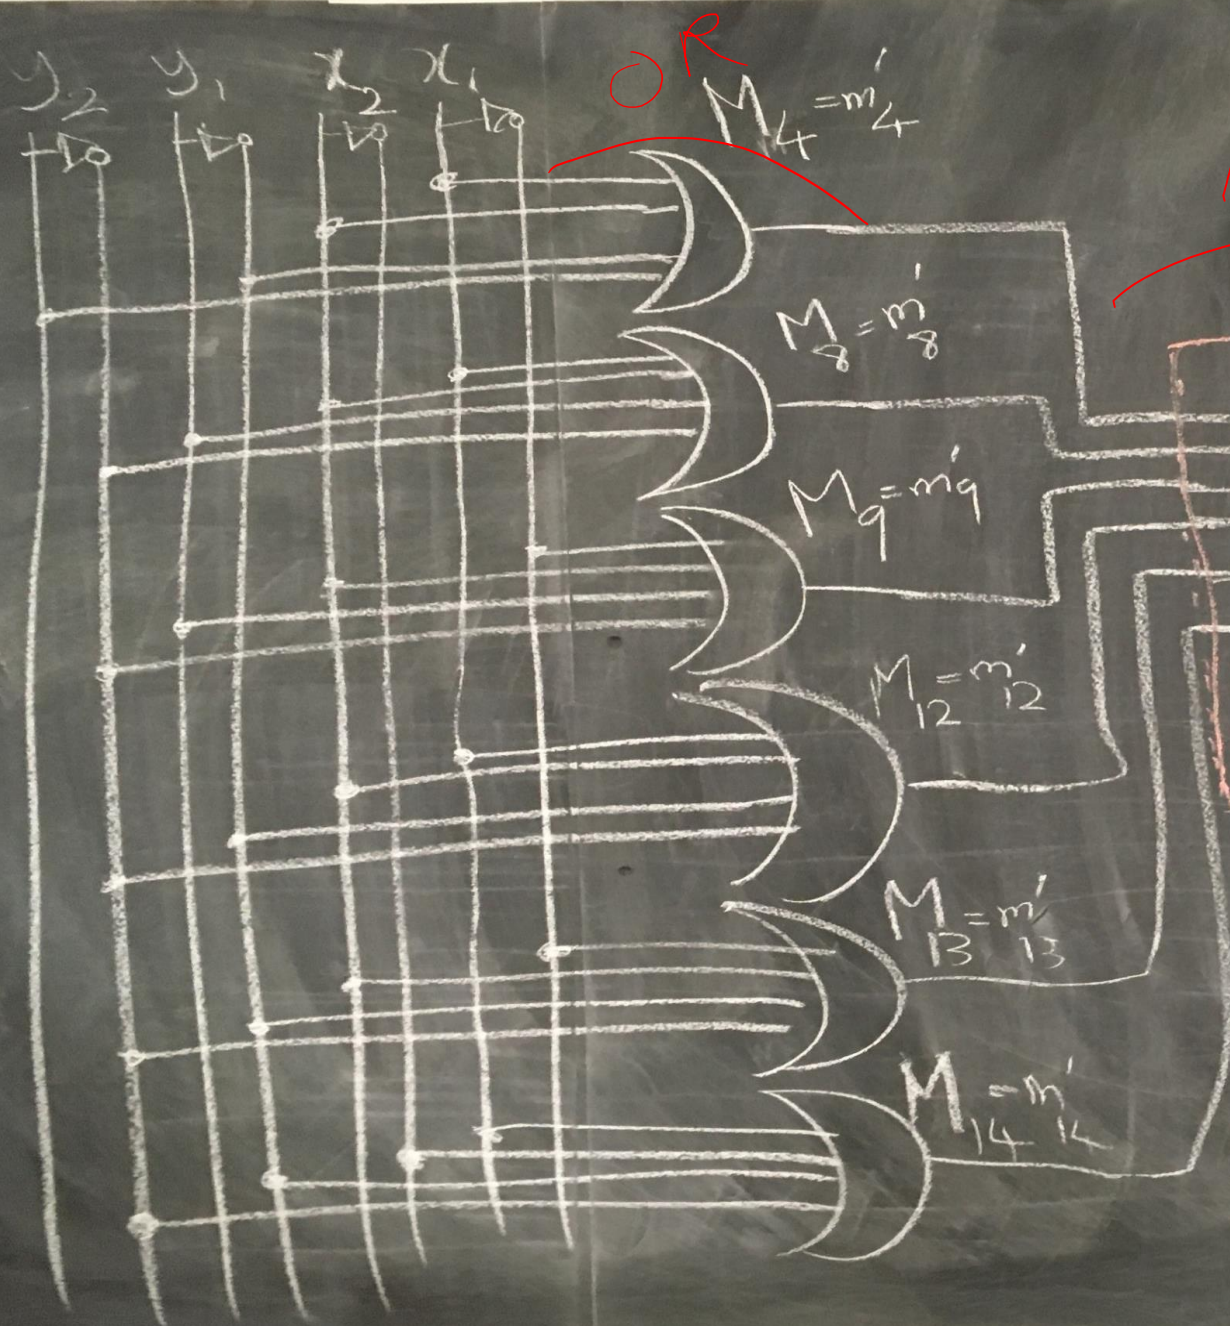 y₂ y₁ x₂ x₁
OR
M₄ = m₄'
M₈ = m₈'
M₉ = m₉'
M₁₂ = m₁₂'
M₁₃ = m₁₃'
M₁₄ = m₁₄'